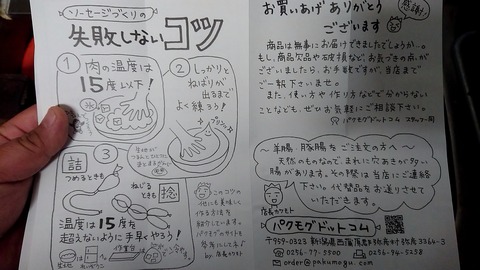 ソーセージづくりの
失敗しないコツ
① 肉の温度は
15度以下!
② しっかりと
ねばりが
出るまで
よく練ろう!
③
詰
つめるときも
ねじる
ときも
捻
温度は15度を
超えないように手早くやろう!
このコツの
他にも美味しく
作る方法を
紹介しています。
パクモグのサイトも
参考にしてネ♪
お買いあげありがとう
ございます
感謝!
商品は無事にお届けできましたでしょうか…。
もし、商品欠品や破損など、お気づきの点が
ございましたら、お手数ですが、当店まで
ご一報下さいませ。
また、使い方や作り方などで分からない
ことなども、ぜひお気軽にご相談下さい。
パクモグドットコム スタッフ一同
～羊腸、豚腸をご注文の方へ～
天然のものなので、まれに穴あきが多い
腸があります。その際は当店にご連絡
下さい。代替品をお送りさせて
いただきます。
パクモグドットコム
〒959-0323 新潟県西蒲原郡弥彦村弥彦3264-3
0256-77-3300
0256-94-5258
order@pakumogu.com